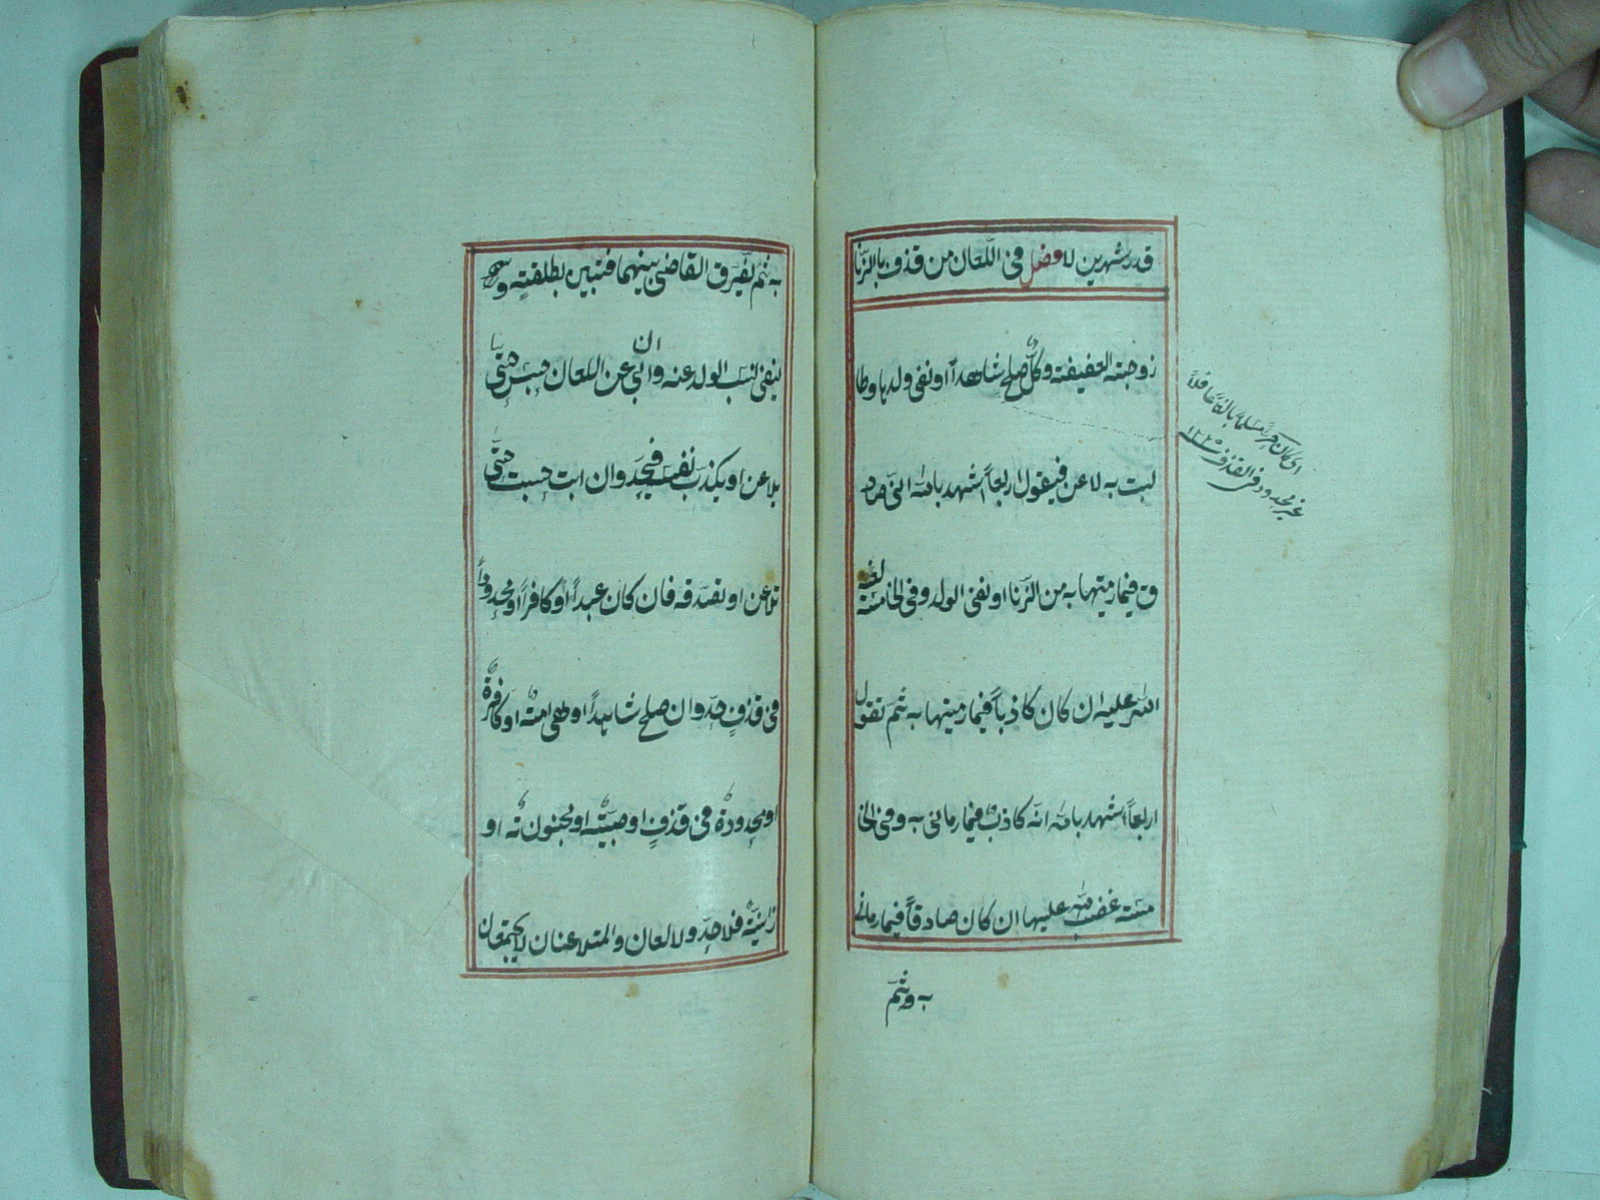 قدر شهرين لا فصل فى اللعان من قذف بالزنا
زوجته العفيفة وكل صلح شاهداً او نفى ولدها وطا
لبت به لاعن فيقول اربعاً اشهد بالله انى صاد
ق فيما رميتها به من الزنا او نفى الولد وفى الخامسة لعنة
الله عليه ان كان كاذباً فيما رميتها به ثم تقول
اربعاً اشهد بالله انه كاذب فيما رمانى به وفى الخا
مسة غضب الله عليها ان كان صادقاً فيما رمانى
به و ثم
اى كان حراً مسلماً بالغاً عاقلاً
غير محدود فى القذف
به ثم يفرق القاضى بينهما فتبين بطلقة و
ينفى نسب الولد عنه وان ابى عن اللعان حبس حتى
يلاعن او يكذب نفسه فيحد وان ابت حبست حتى
تلاعن او تصدقه فان كان عبداً او كافراً او محدوداً
فى قذف حد وان صلح شاهداً وهى امة او كافرة
او محدودة فى قذف او صبية او مجنونة او
زانية فلا حد ولا لعان والمتلاعنان لا يجتمعان